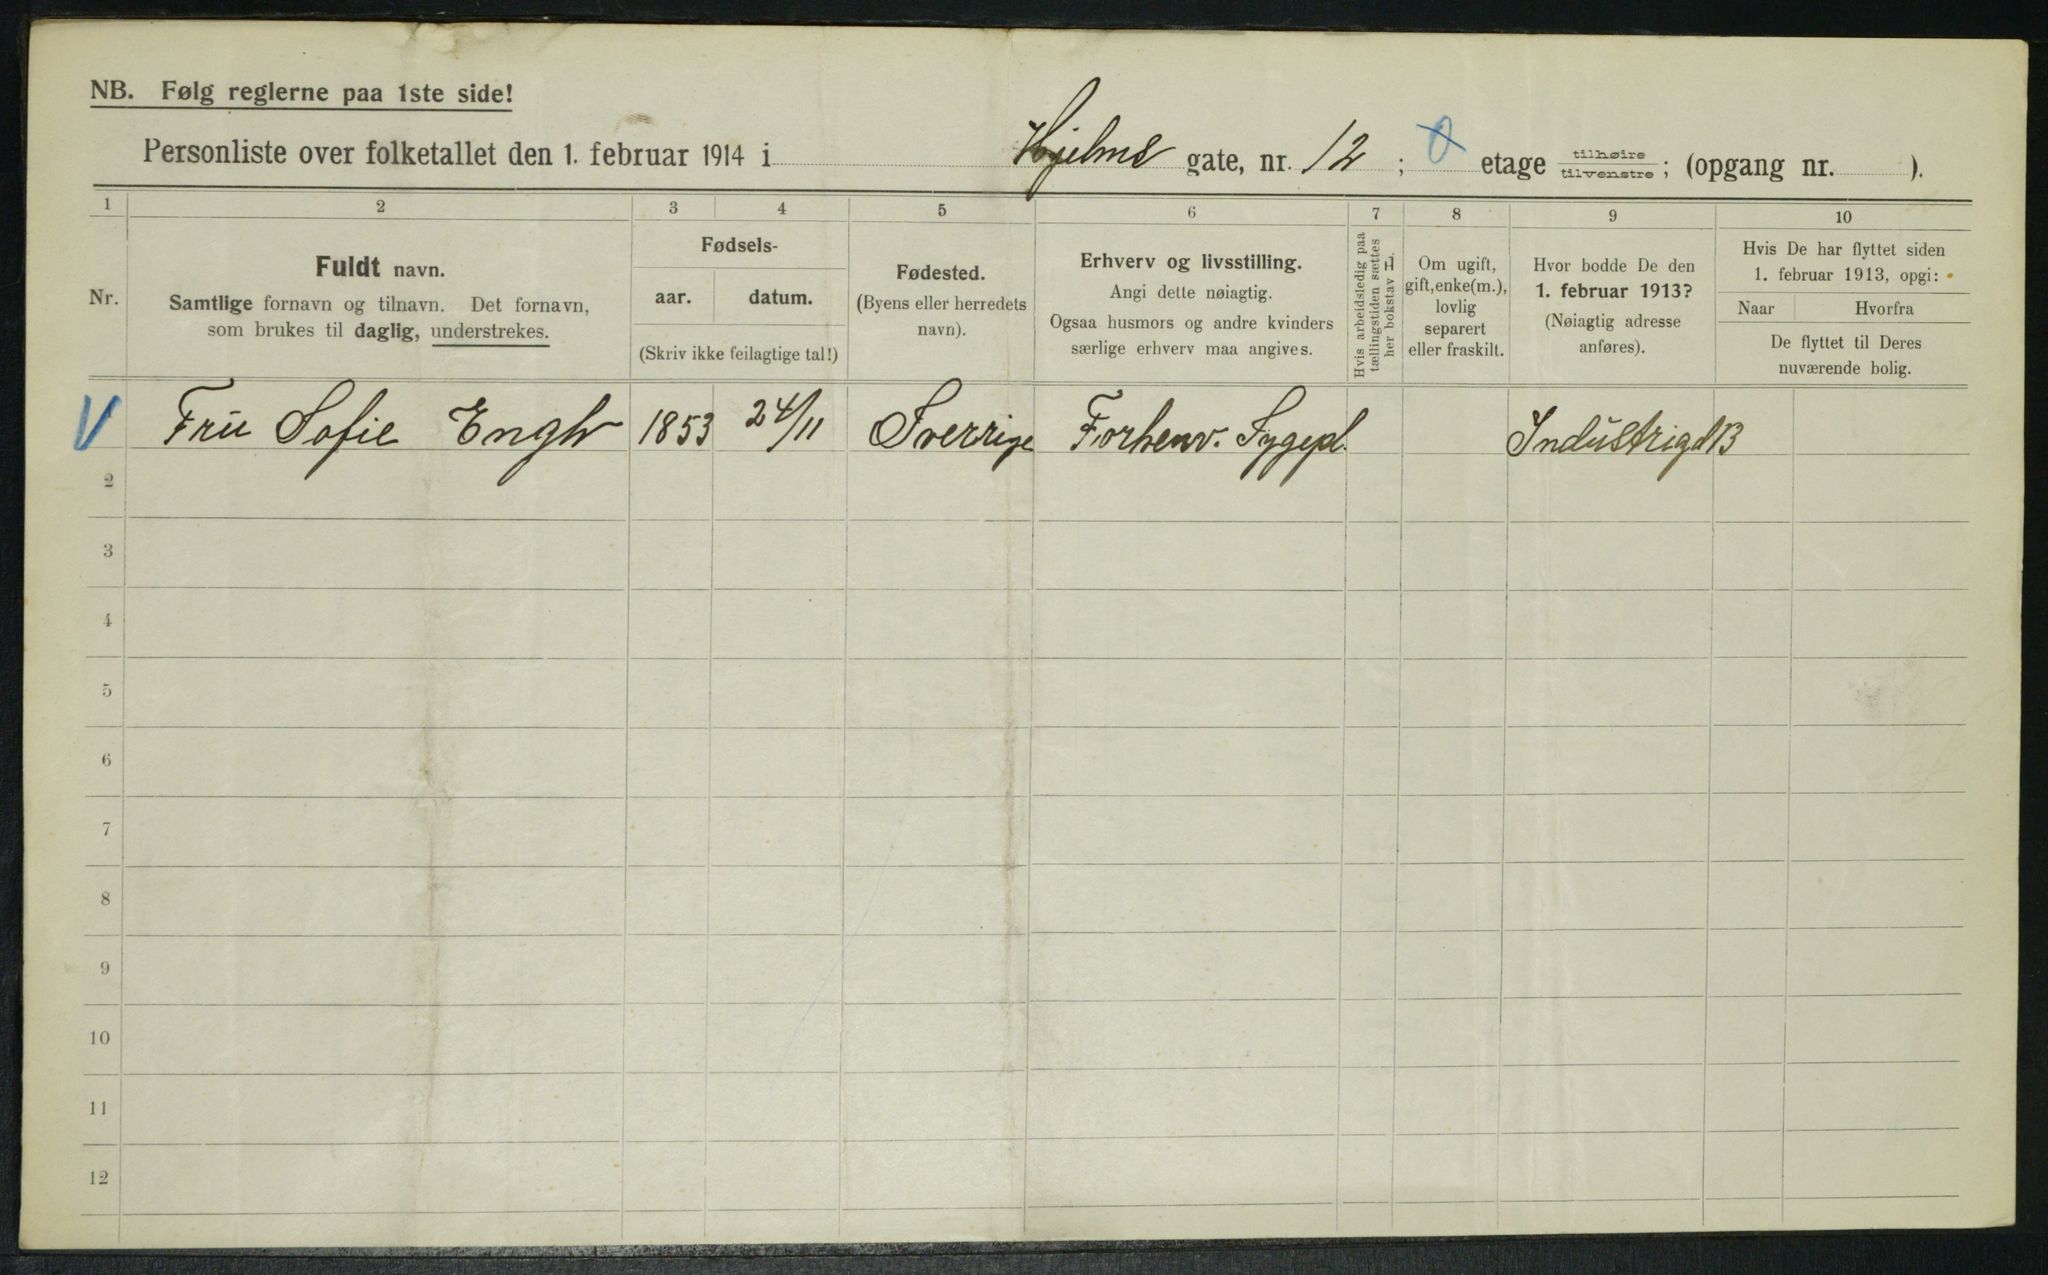 NB. Følg reglerne paa 1ste side!
Personliste over folketallet den 1. februar 1914 i Hjelms gate, nr. 12 ; etage tilhøire tilvenstre ; (opgang nr. ).
1 2 3 4 5 6 7 8 9 10
Nr.
Fuldt navn.
Samtlige fornavn og tilnavn. Det fornavn,
som brukes til daglig, understrekes.
Fødsels-
aar. datum.
(Skriv ikke feilagtige tal!)
Fødested.
(Byens eller herredets
navn).
Erhverv og livsstilling.
Angi dette nøiagtig.
Ogsaa husmors og andre kvinders
særlige erhverv maa angives.
Hvis arbeidsledig paa
tællingstiden sættes
her bokstav L.
Om ugift,
gift, enke(m.),
lovlig
separert
eller fraskilt.
Hvor bodde De den
1. februar 1913?
(Nøiagtig adresse
anføres).
Hvis De har flyttet siden
1. februar 1913, opgi:
Naar Hvorfra
De flyttet til Deres
nuværende bolig.
V Fru Sofie Engh 1853 24/11 Sverrige Forhenv. Sygepl.
2
3
4
5
6
7
8
9
10
11
12